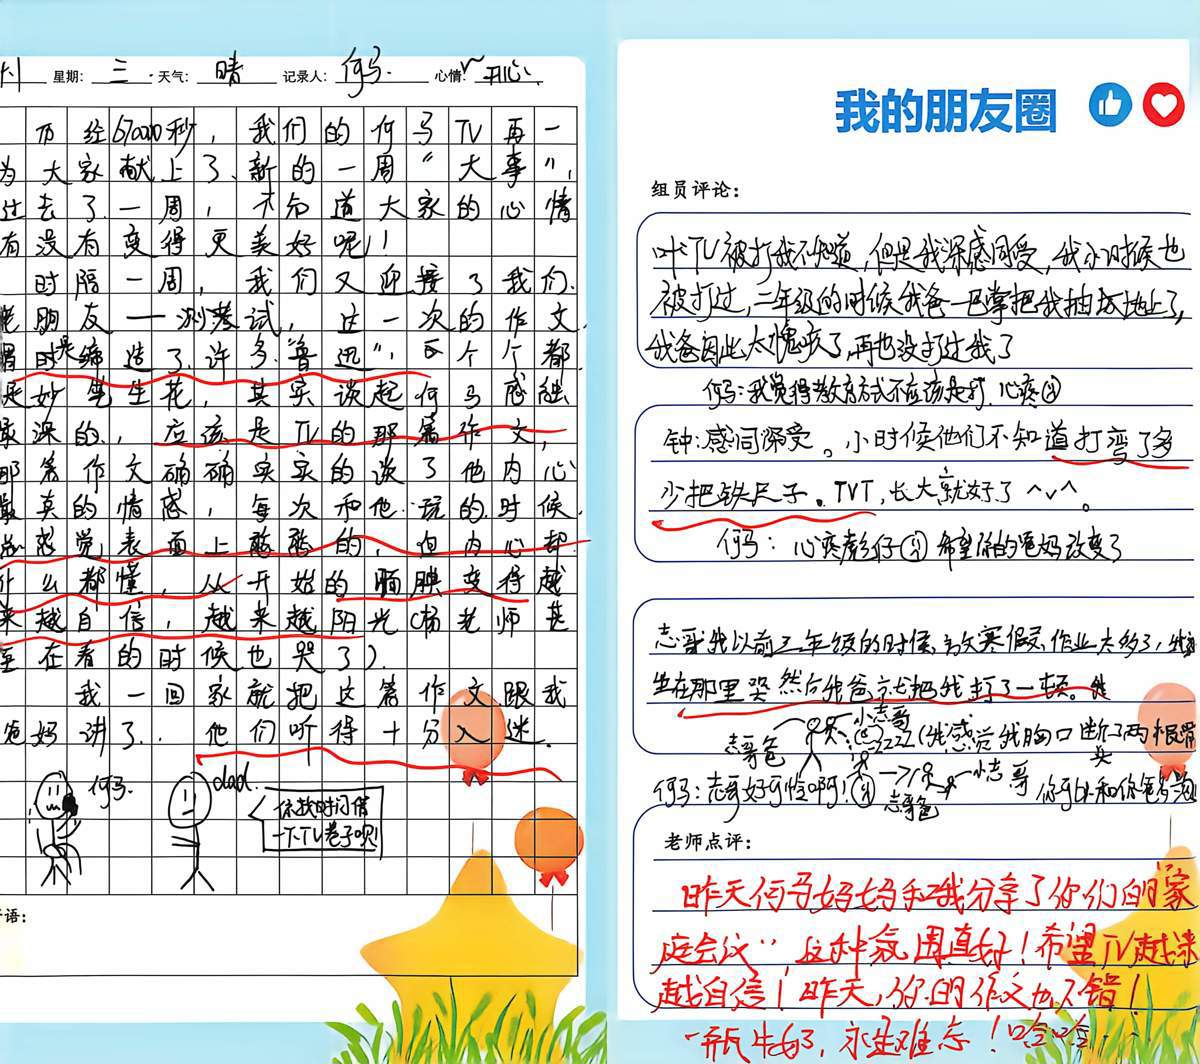 星期：三 天气：晴 记录人：何马. 心情：开心
历经67000秒，我们的何马TV再一
为大家献上了新的一周“大事”，
过去了一周，不知道大家的心情
有没有变得更美好呢！
时隔一周，我们又迎接了我们
老朋友——测考试，这一次的作文
是编造了许多“鲁迅”，个个都
是妙笔生花，其实谈起何马感触
最深的，应该是TV的那篇作文，
那篇作文确确实实的谈了他内心
最真的情感，每次和他玩的时候
总感觉表面上憨憨的，但内心却
什么都懂，从开始的腼腆变得越
来越自信，越来越阳光（杨老师甚
至在看的时候也哭了）.
我一回家就把这篇作文跟我
爸妈讲了，他们听得十分入迷.
何马
dad
你找时间借
一下TV卷子呗！
语：
我的朋友圈
组员评论：
叶：TV被打我不知道，但是我深感同受，我小时候也
被打过，二年级的时候我爸一巴掌把我抽地上了，
我爸因此太愧疚了，再也没打过我了
何马：我觉得教育方式不应该是打，心疼
钟：感同深受。小时候他们不知道打弯了多
少把铁尺子。TVT，长大就好了^v^。
何马：心疼彪仔 希望你的爸妈改变了
志哥：我以前三年级的时候，寒假作业太多了，
坐在那里哭 然后我爸就把我打了一顿。
小志哥
志哥爸
（我感觉我胸口断了两根骨
头
何马：志哥好可怜啊！
小志哥
志哥爸
你可以和你爸
老师点评：
昨天何马妈妈和我分享了你们的“家
庭会议”，这种氛围真好！希望TV越来
越自信！昨天，你的作文也不错！
一瓶牛奶，永生难忘！哈哈